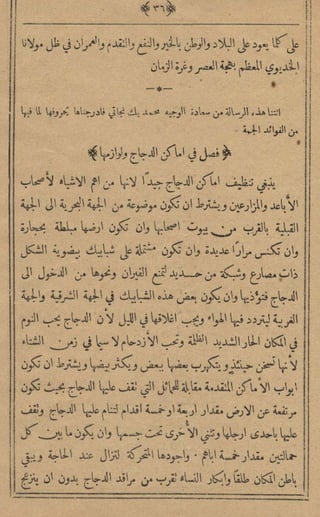 ﴿٣٦﴾
على كما يعود على البلاد والوطن بالخير والنفع والتقدم والعمران في ظل مولانا
الخديوي المعظم بهجة العصر وغرة الزمان
اتتنا هذه الرسالة من سعادة الوجيه محمد بك نجاتي فادرجناها بحروفها لما فيها
من الفوائد الجمة
﴿فصل في اماكن الدجاج ولوازمها﴾
ينبغي تنظيف اماكن الدجاج جيدًا لانها من اهم الاشياء لأصحاب
الأباعد والمزارعين ويشترط ان تكون موضوعة من الجهة البحرية الى الجهة
القبلية بالقرب من بيوت اصحابها وان تكون ارضها مبلطة بحجارة
وان تكنس مرارًا عديدة وان تكون مشتملة على شبابيك بيضوية الشكل
ذات مصارع وشبكة من حديد لتمنع الفيران ونحوها من الدخول الى
الدجاج فتؤذيها وان يكون بعض هذه الشبابيك في الجهة الشرقية والجهة
الغربية ليتردد فيها الهواء ويجب اغلاقها في الليل لأن الدجاج يحب النوم
في المكان الحار الشديد الظلمة وتحب الأزدحام لا سيما في زمن الشتاء
لأنها تسخن حينئذ ويتكهرب بعضها ببعض ويكثر بيضها ويشترط ان تكون
ابواب الأماكن المتقدمة مقابلة للحمائل التي تقف عليها الدجاج بحيث تكون
مرتفعة عن الارض مقدار اربعة او خمسة اقدام لتنام عليها الدجاج وتقف
عليها باحدى ارجلها وتثني الأخرى تحت جسمها وان يكون ما بين كل
حمالتين مقدار خمسة اباهم . واجودها المتحركة لتزال عند الحاجة ويبقي
باطن المكان طلقًا وابكار النساء تقرب من مراقد الدجاج بدون ان ينزعج